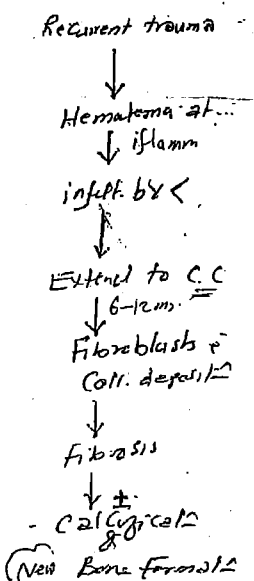 Recurrent trauma
Hematoma at...
iflamm
infilt. by <
Extend to C.C
6-12 ms.
Fibroblasts c̄
Coll. deposit
Fibrosis
±
- Calcificat
&
(New Bone format